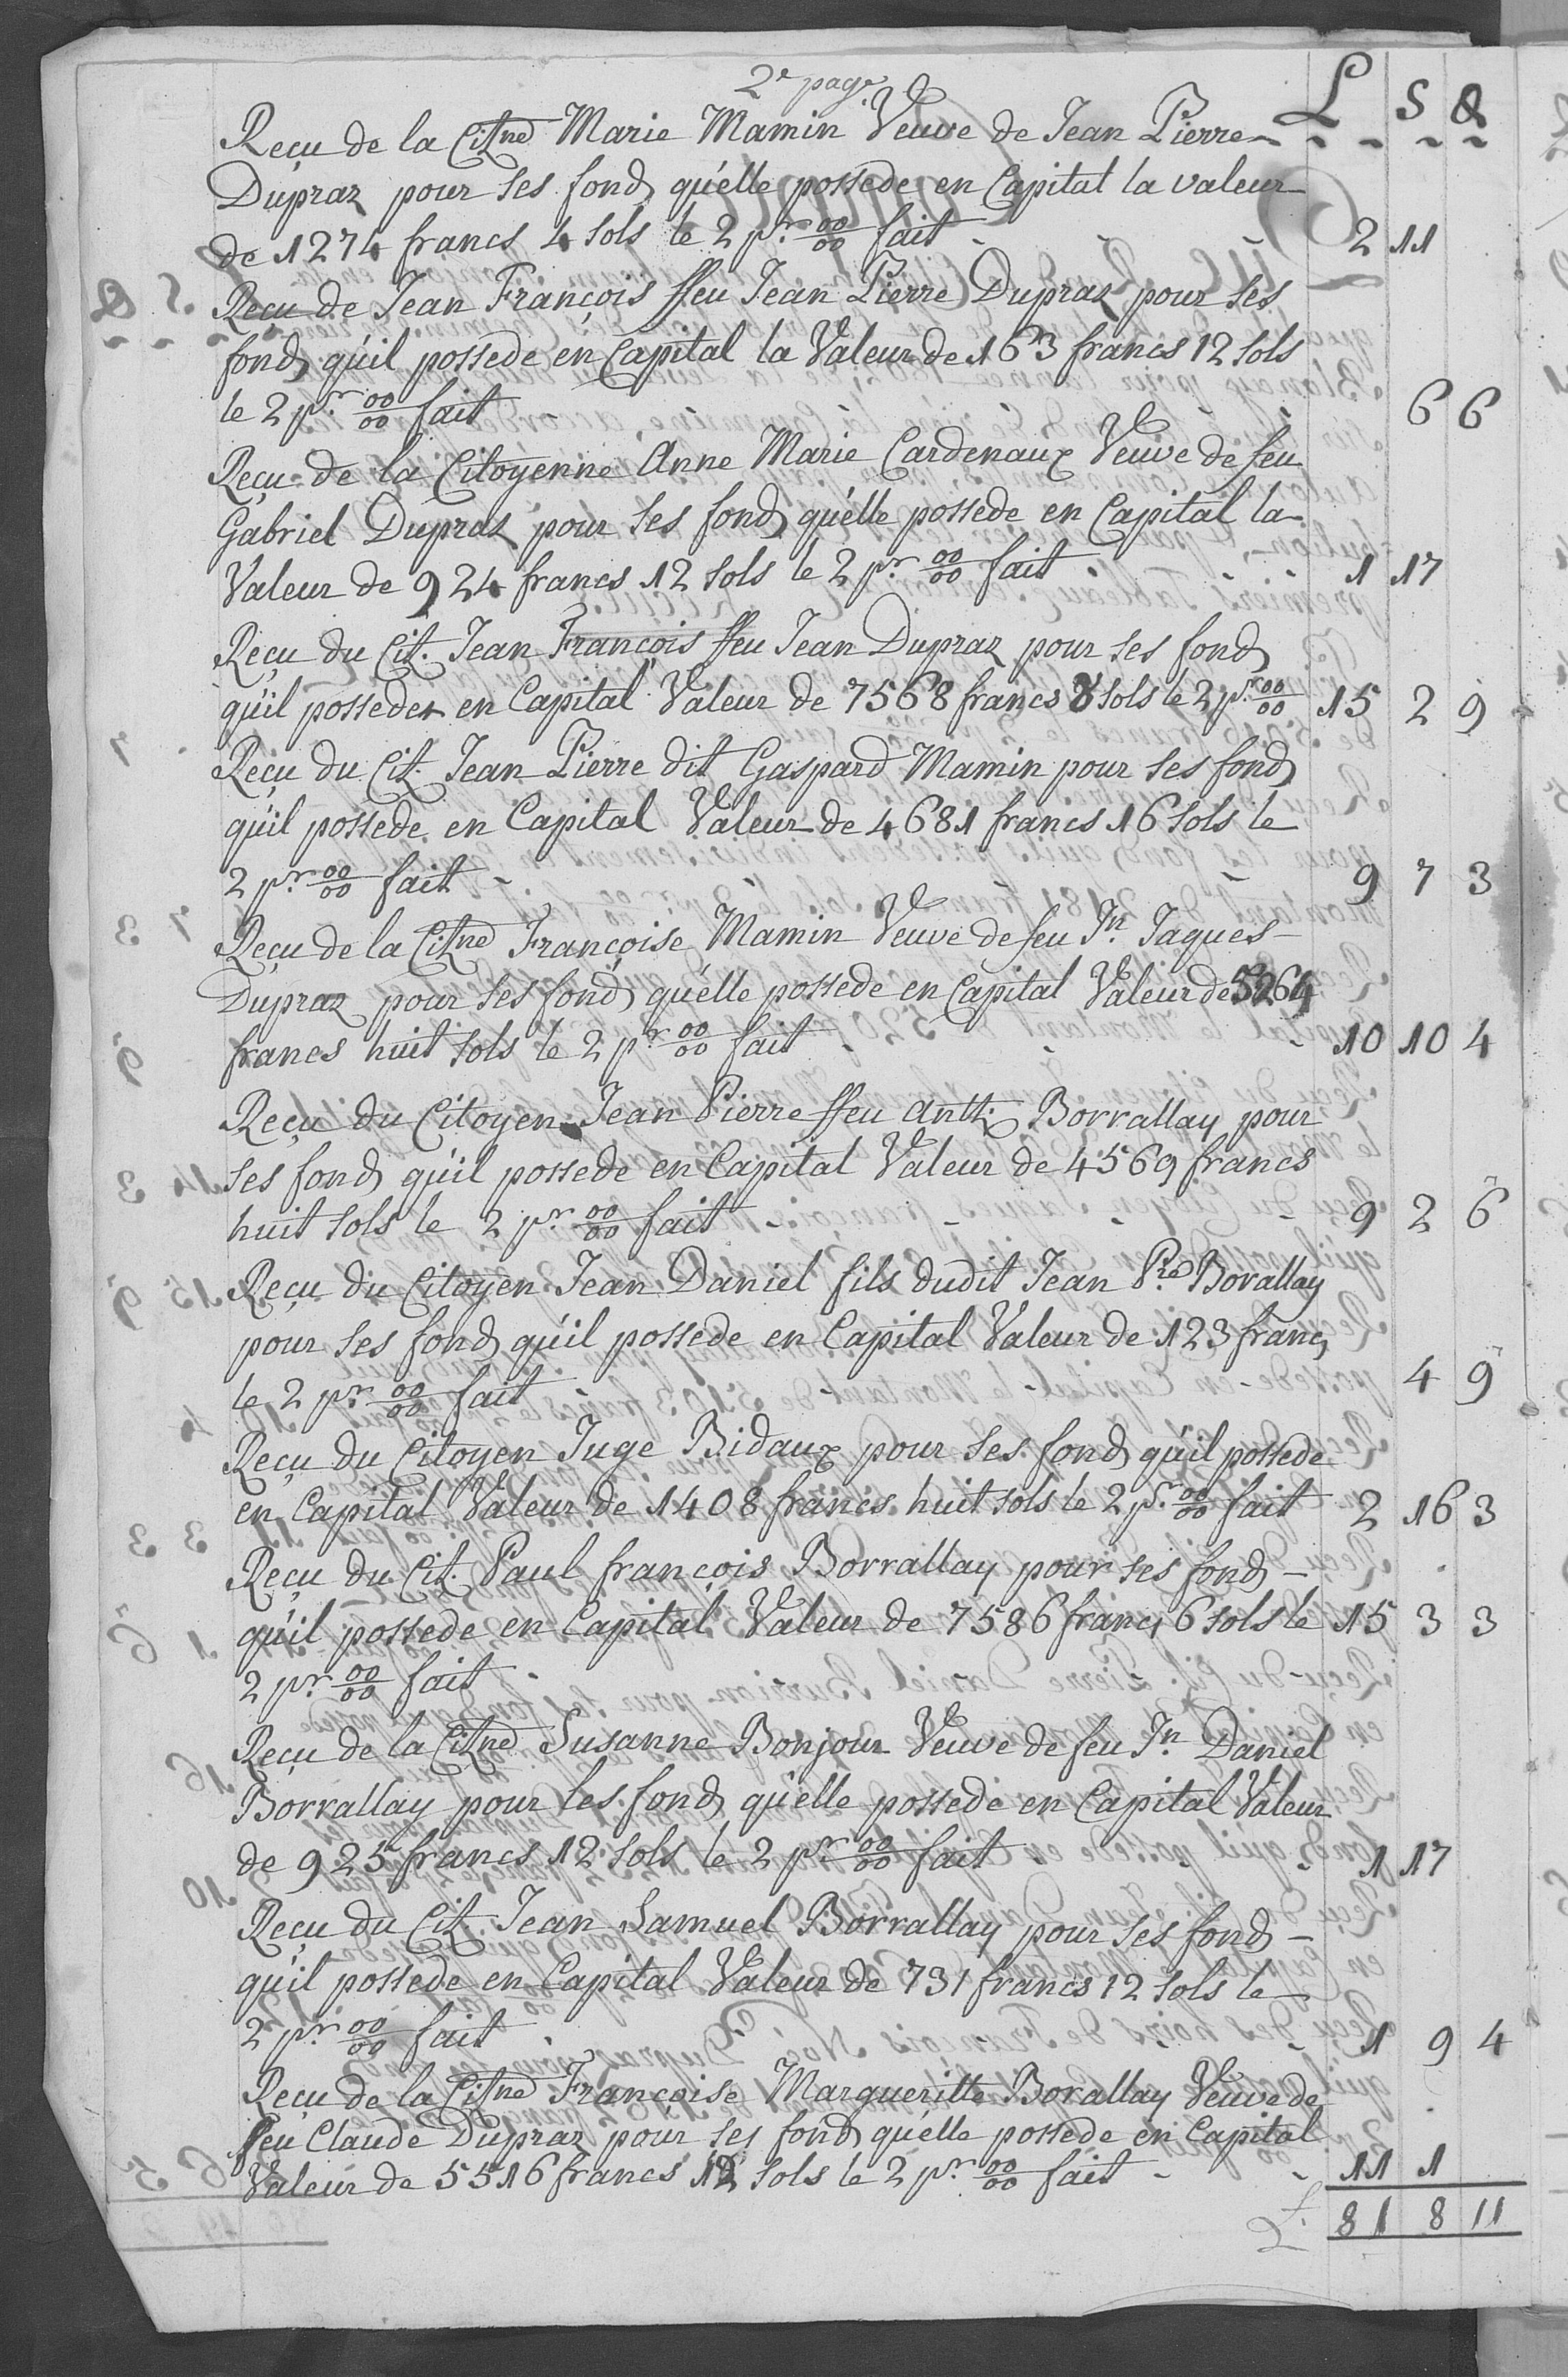 2e page
L S &
Reçu de la Citne Marie Mamin Veuve de Jean Pierre
Dupraz pour ses fonds qu'elle possede en Capital la valeur
de 1274 francs 4 sols le 2 pr 00/00 fait - 2 11
Reçu de Jean François ffeu Jean Pierre Dupraz pour ses
fonds qu'il possede en Capital la Valeur de 163 francs 12 sols
le 2 pr 00/00 fait 6 6
Reçu de la Citoyenne Anne Marie Cardenaux Veuve de feu
Gabriel Dupraz pour ses fonds qu'elle possede en Capital la
Valeur de 924 francs 12 sols le 2 pr 00/00 fait 1 17
Reçu du Cit. Jean François ffeu Jean Dupraz pour ses fonds
qu'il possede en Capital Valeur de 7568 francs 8 sols le 2 pr 00/00 15 2 9
Reçu du Cit. Jean Pierre dit Gaspard Mamin pour ses fonds
qu'il possede en Capital Valeur de 4681 francs 16 sols le
2 pr 00/00 fait - 9 7 3
Reçu de la Citne Françoise Mamin Veuve de feu Jn. Jaques
Dupraz pour ses fonds qu'elle possede en Capital Valeur de 5264
francs huit sols le 2 pr 00/00 fait - 10 10 4
Reçu du Citoyen Jean Pierre ffeu Anth. Borrallay pour
ses fonds qu'il possede en Capital Valeur de 4569 francs
huit sols le 2 pr 00/00 fait - 9 2 6
Reçu du Citoyen Jean Daniel fils dudit Jean Pre Borallay
pour ses fonds qu'il possede en Capital Valeur de 123 francs
le 2 pr 00/00 fait - 4 9
Reçu du Citoyen Juge Bidaux pour ses fonds qu'il possede
en Capital Valeur de 1408 francs huit sols le 2 pr 00/00 fait 2 16 3
Reçu du Cit. Paul françois Borrallay pour ses fonds -
qu'il possede en Capital Valeur de 7586 francs 6 sols le 15 3 3
2 pr 00/00 fait
Reçu de la Citne Susanne Bonjour Veuve de feu Jn. Daniel
Borrallay pour les fonds qu'elle possede en Capital Valeur
de 925 francs 12 sols le 2 pr 00/00 fait - 1 17
Reçu du Cit. Jean Samuel Borrallay pour ses fonds -
qu'il possede en Capital Valeur de 731 francs 12 sols le
2 pr 00/00 fait - 1 9 4
Reçu de la Citne Françoise Margueritte Borallay Veuve de
feu Claude Dupraz pour ses fonds qu'elle possede en Capital
Valeur de 5516 francs 12 sols le 2 pr 00/00 fait - 11 1
81 8 11